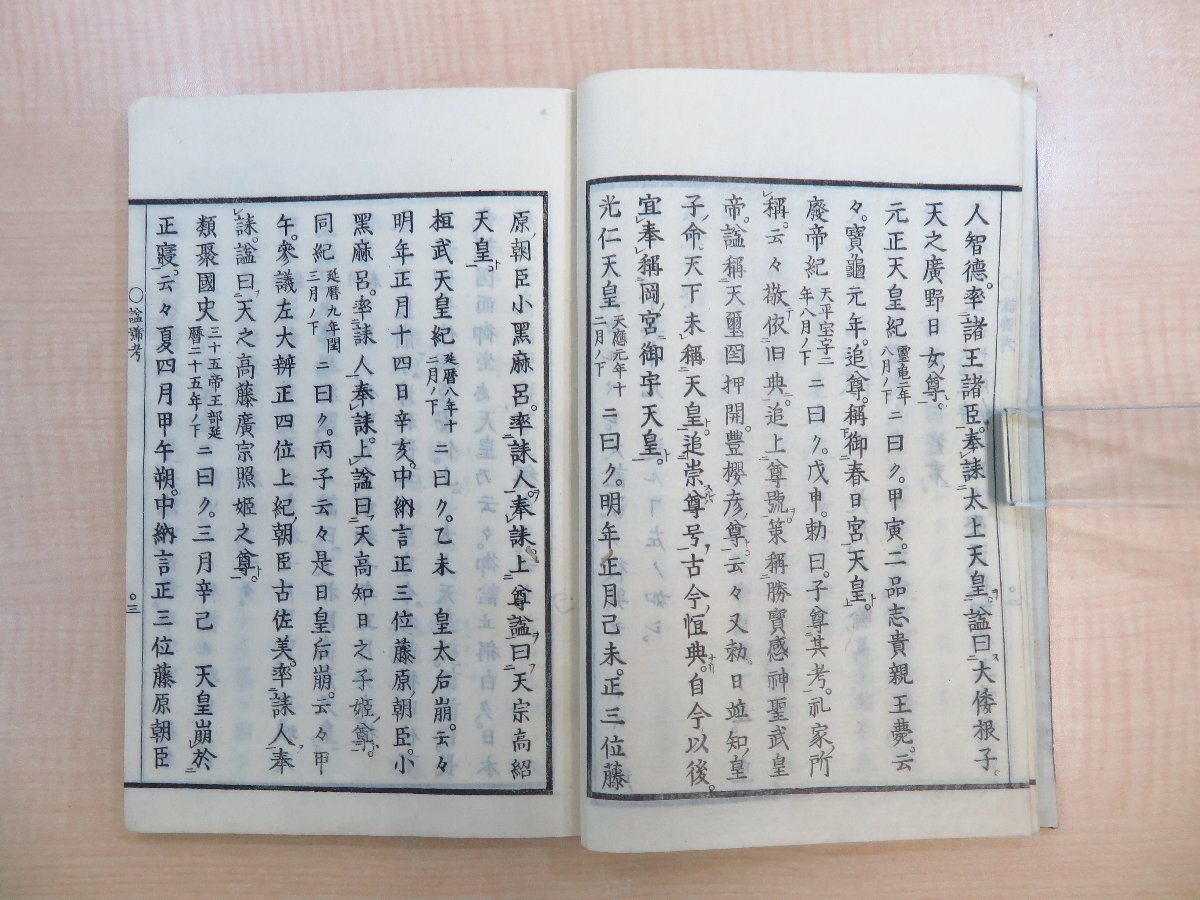 人智德。率諸王諸臣。奉誄太上天皇。諡曰大倭根子
天之廣野日女尊。
元正天皇紀靈亀二年八月ノ下ニ曰ク。甲寅。二品志貴親王薨。云
々。寶龜元年。追尊。稱御春日宮天皇。
廢帝紀天平宝字二年八月ノ下ニ曰ク。戊申。勅曰。子尊其考。礼家ノ所
稱。云々敬依旧典。追上尊號。策稱勝寶感神聖武皇
帝。諡稱天璽国押開豐櫻彦尊。云々又勅。日並知皇
子命天下未稱天皇。追崇尊号。古今恒典。自今以後。
宜奉稱岡宮御宇天皇。
光仁天皇天應元年十二月ノ下ニ曰ク。明年正月己未。正三位藤
原朝臣小黑麻呂。率誄人奉誄。上尊諡曰天宗高紹
天皇。
桓武天皇紀延暦八年十二月ノ下ニ曰ク。乙未皇太后崩。云々
明年正月十四日辛亥。中納言正三位藤原朝臣小
黑麻呂。率誄人奉誄。上諡曰天高知日之子姬尊。
同紀延曆九年閏三月ノ下ニ曰ク。丙子云々是日皇后崩。云々甲
午。參議左大辨正四位上紀朝臣古佐美。率誄人奉
誄。諡曰天之高藤廣宗照姬之尊。
類聚國史三十五帝王部延曆二十五年ノ下ニ曰ク。三月辛己天皇崩於
正寢。云々夏四月甲午朔。中納言正三位藤原朝臣
○諡諱考
○三